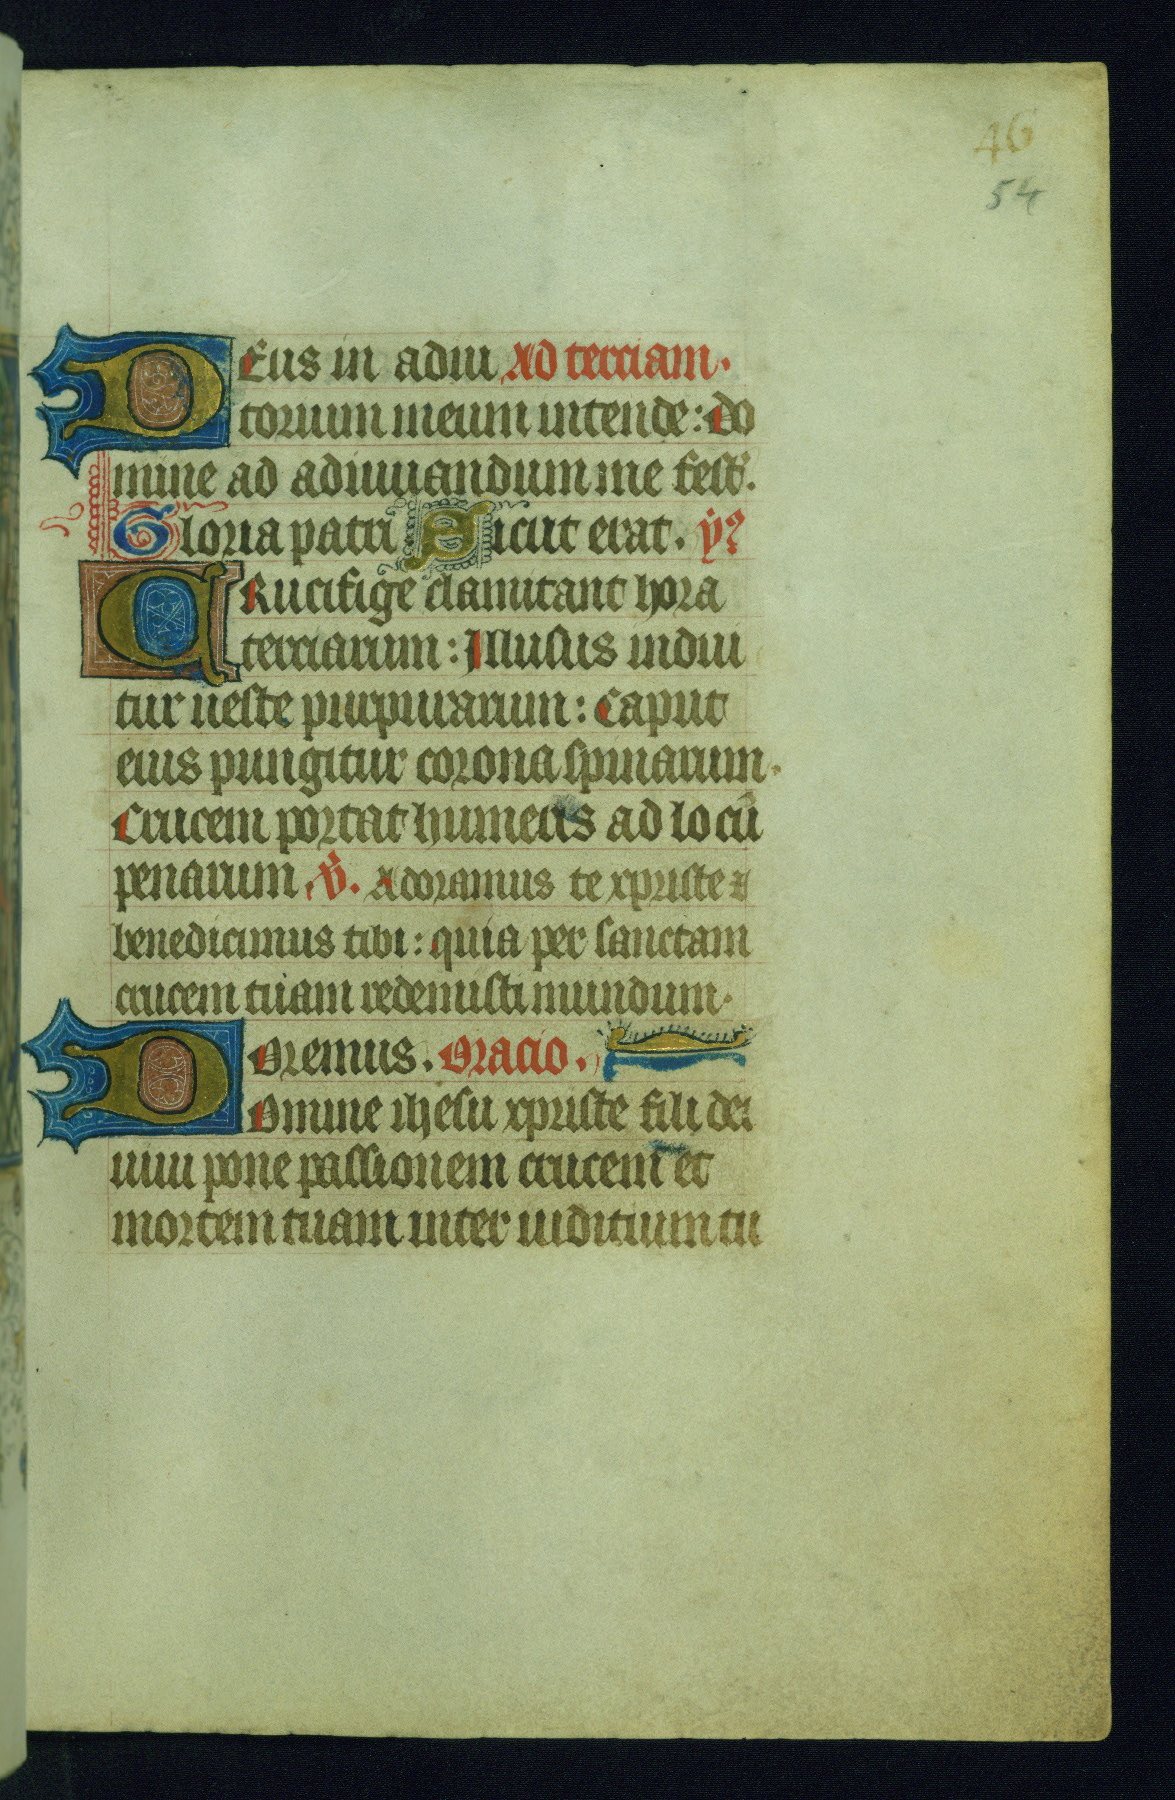 46
54
DEus in adiu Ad terciam.
torium meum intende: do
mine ad adiuuandum me fest̄.
Gloria patri Sicut erat. ỹ
CRucifige clamitant hora
terciarum: Illusus indui
tur ueste purpurarum: Caput
eius pungitur corona spinarum.
Crucem portat humeris ad locū
penarum. v̄. Adoramus te xpriste ⁊
benedicimus tibi: quia per sanctam
crucem tuam redemisti mundum.
Oremus. Oracio.
DOmine ihesu xpriste fili dei
uiui pone passionem crucem et
mortem tuam inter iuditium tu